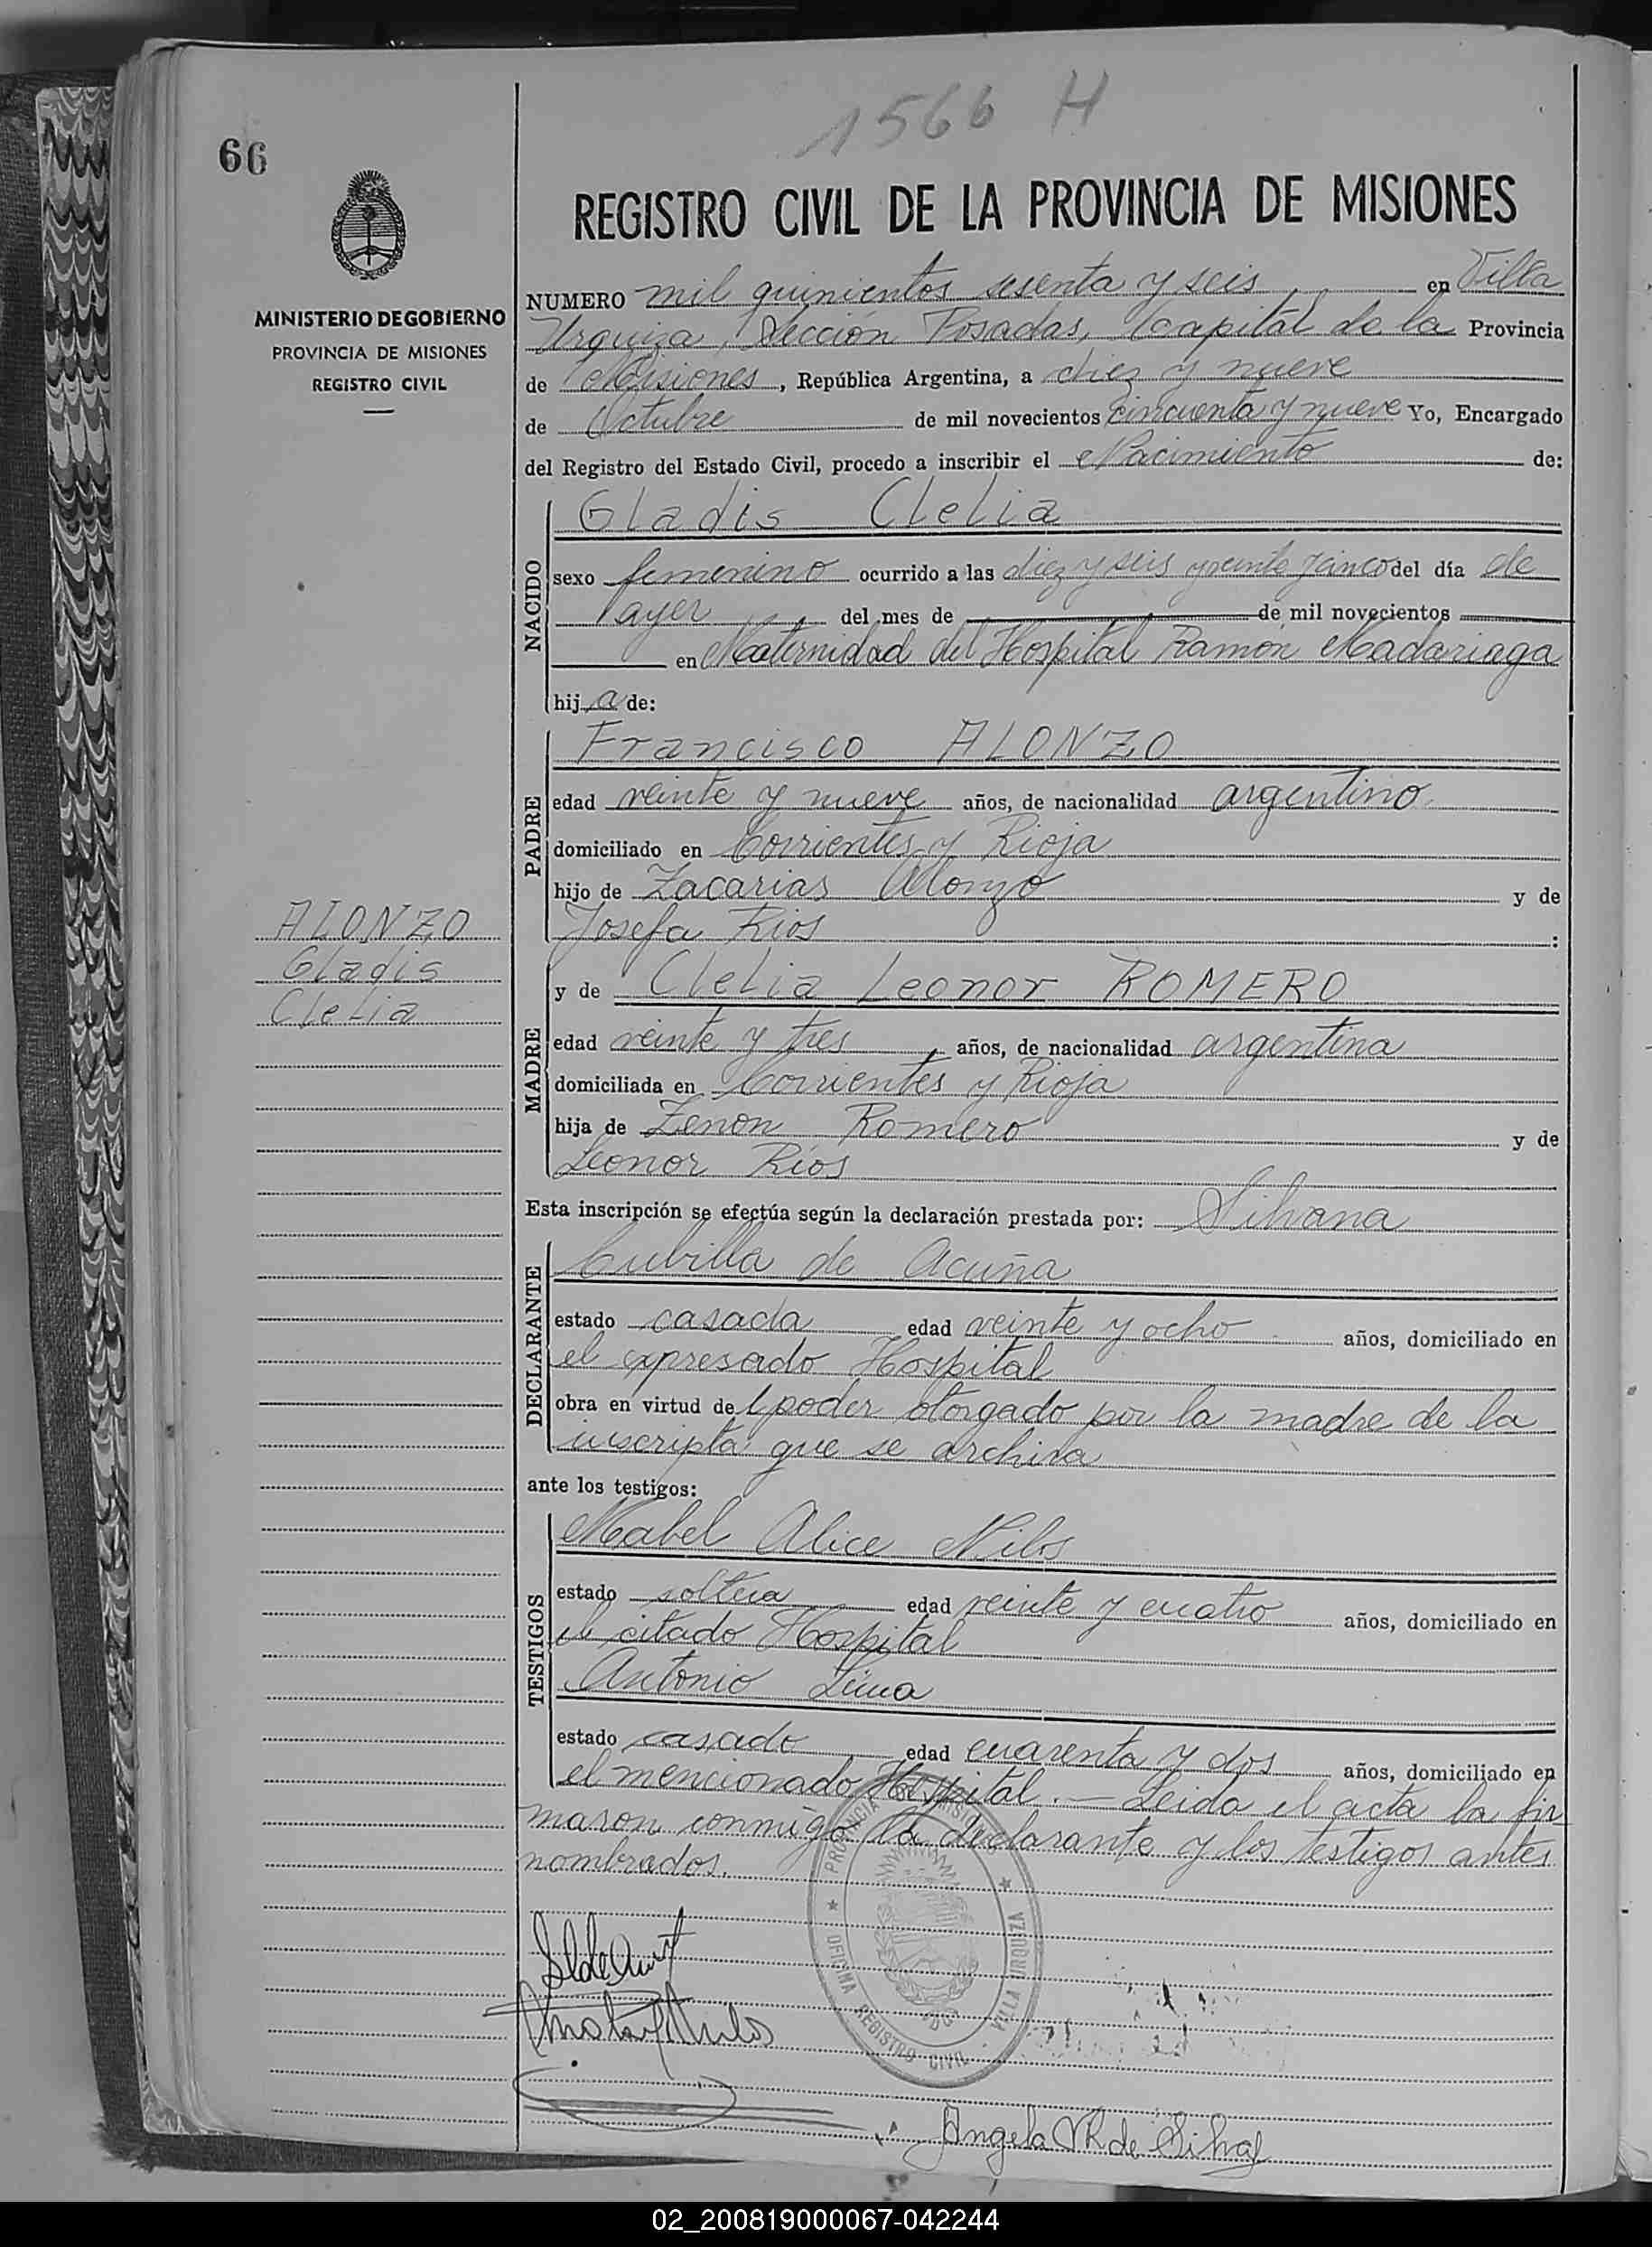 1566 H
66
REGISTRO CIVIL DE LA PROVINCIA DE MISIONES
MINISTERIO DE GOBIERNO
PROVINCIA DE MISIONES
REGISTRO CIVIL
NUMERO mil quinientos sesenta y seis en Villa
Urquiza, Sección Posadas, Capital de la Provincia
de Misiones, República Argentina, a diez y nueve
de Octubre de mil novecientos cincuenta y nueve Yo, Encargado
del Registro del Estado Civil, procedo a inscribir el Nacimiento de:
NACIDO
Gladis Clelia
sexo femenino ocurrido a las diez y seis y veinte y cinco del día de
ayer del mes de de mil novecientos
en Maternidad del Hospital Ramón Madariaga
hija de:
PADRE
Francisco ALONZO
edad veinte y nueve años, de nacionalidad argentino
domiciliado en Corrientes y Rioja
hijo de Zacarias Alonzo y de
Josefa Rios :
ALONZO
Gladis
Clelia
MADRE
y de Clelia Leonor ROMERO
edad veinte y tres, años, de nacionalidad argentina
domiciliada en Corrientes y Rioja
hija de Zenon Romero y de
Leonor Rios
Esta inscripción se efectúa según la declaración prestada por: Silvana
DECLARANTE
Cubilla de Acuña
estado casada edad veinte y ocho años, domiciliado en
el expresado Hospital
obra en virtud del poder otorgado por la madre de la
inscripta que se archiva
ante los testigos:
TESTIGOS
Mabel Alice Nilos
estado soltera edad veinte y cuatro años, domiciliado en
el citado Hospital
Antonio
estado casado edad cuarenta y dos años, domiciliado en
el mencionado Hospital.— Leida el acta la fir-
maron conmigo la declarante y los testigos antes
nombrados.
PROVINCIA DE MISIONES
OFICINA REGISTRO CIVIL VILLA URQUIZA
Angela de Silva
02_200819000067-042244